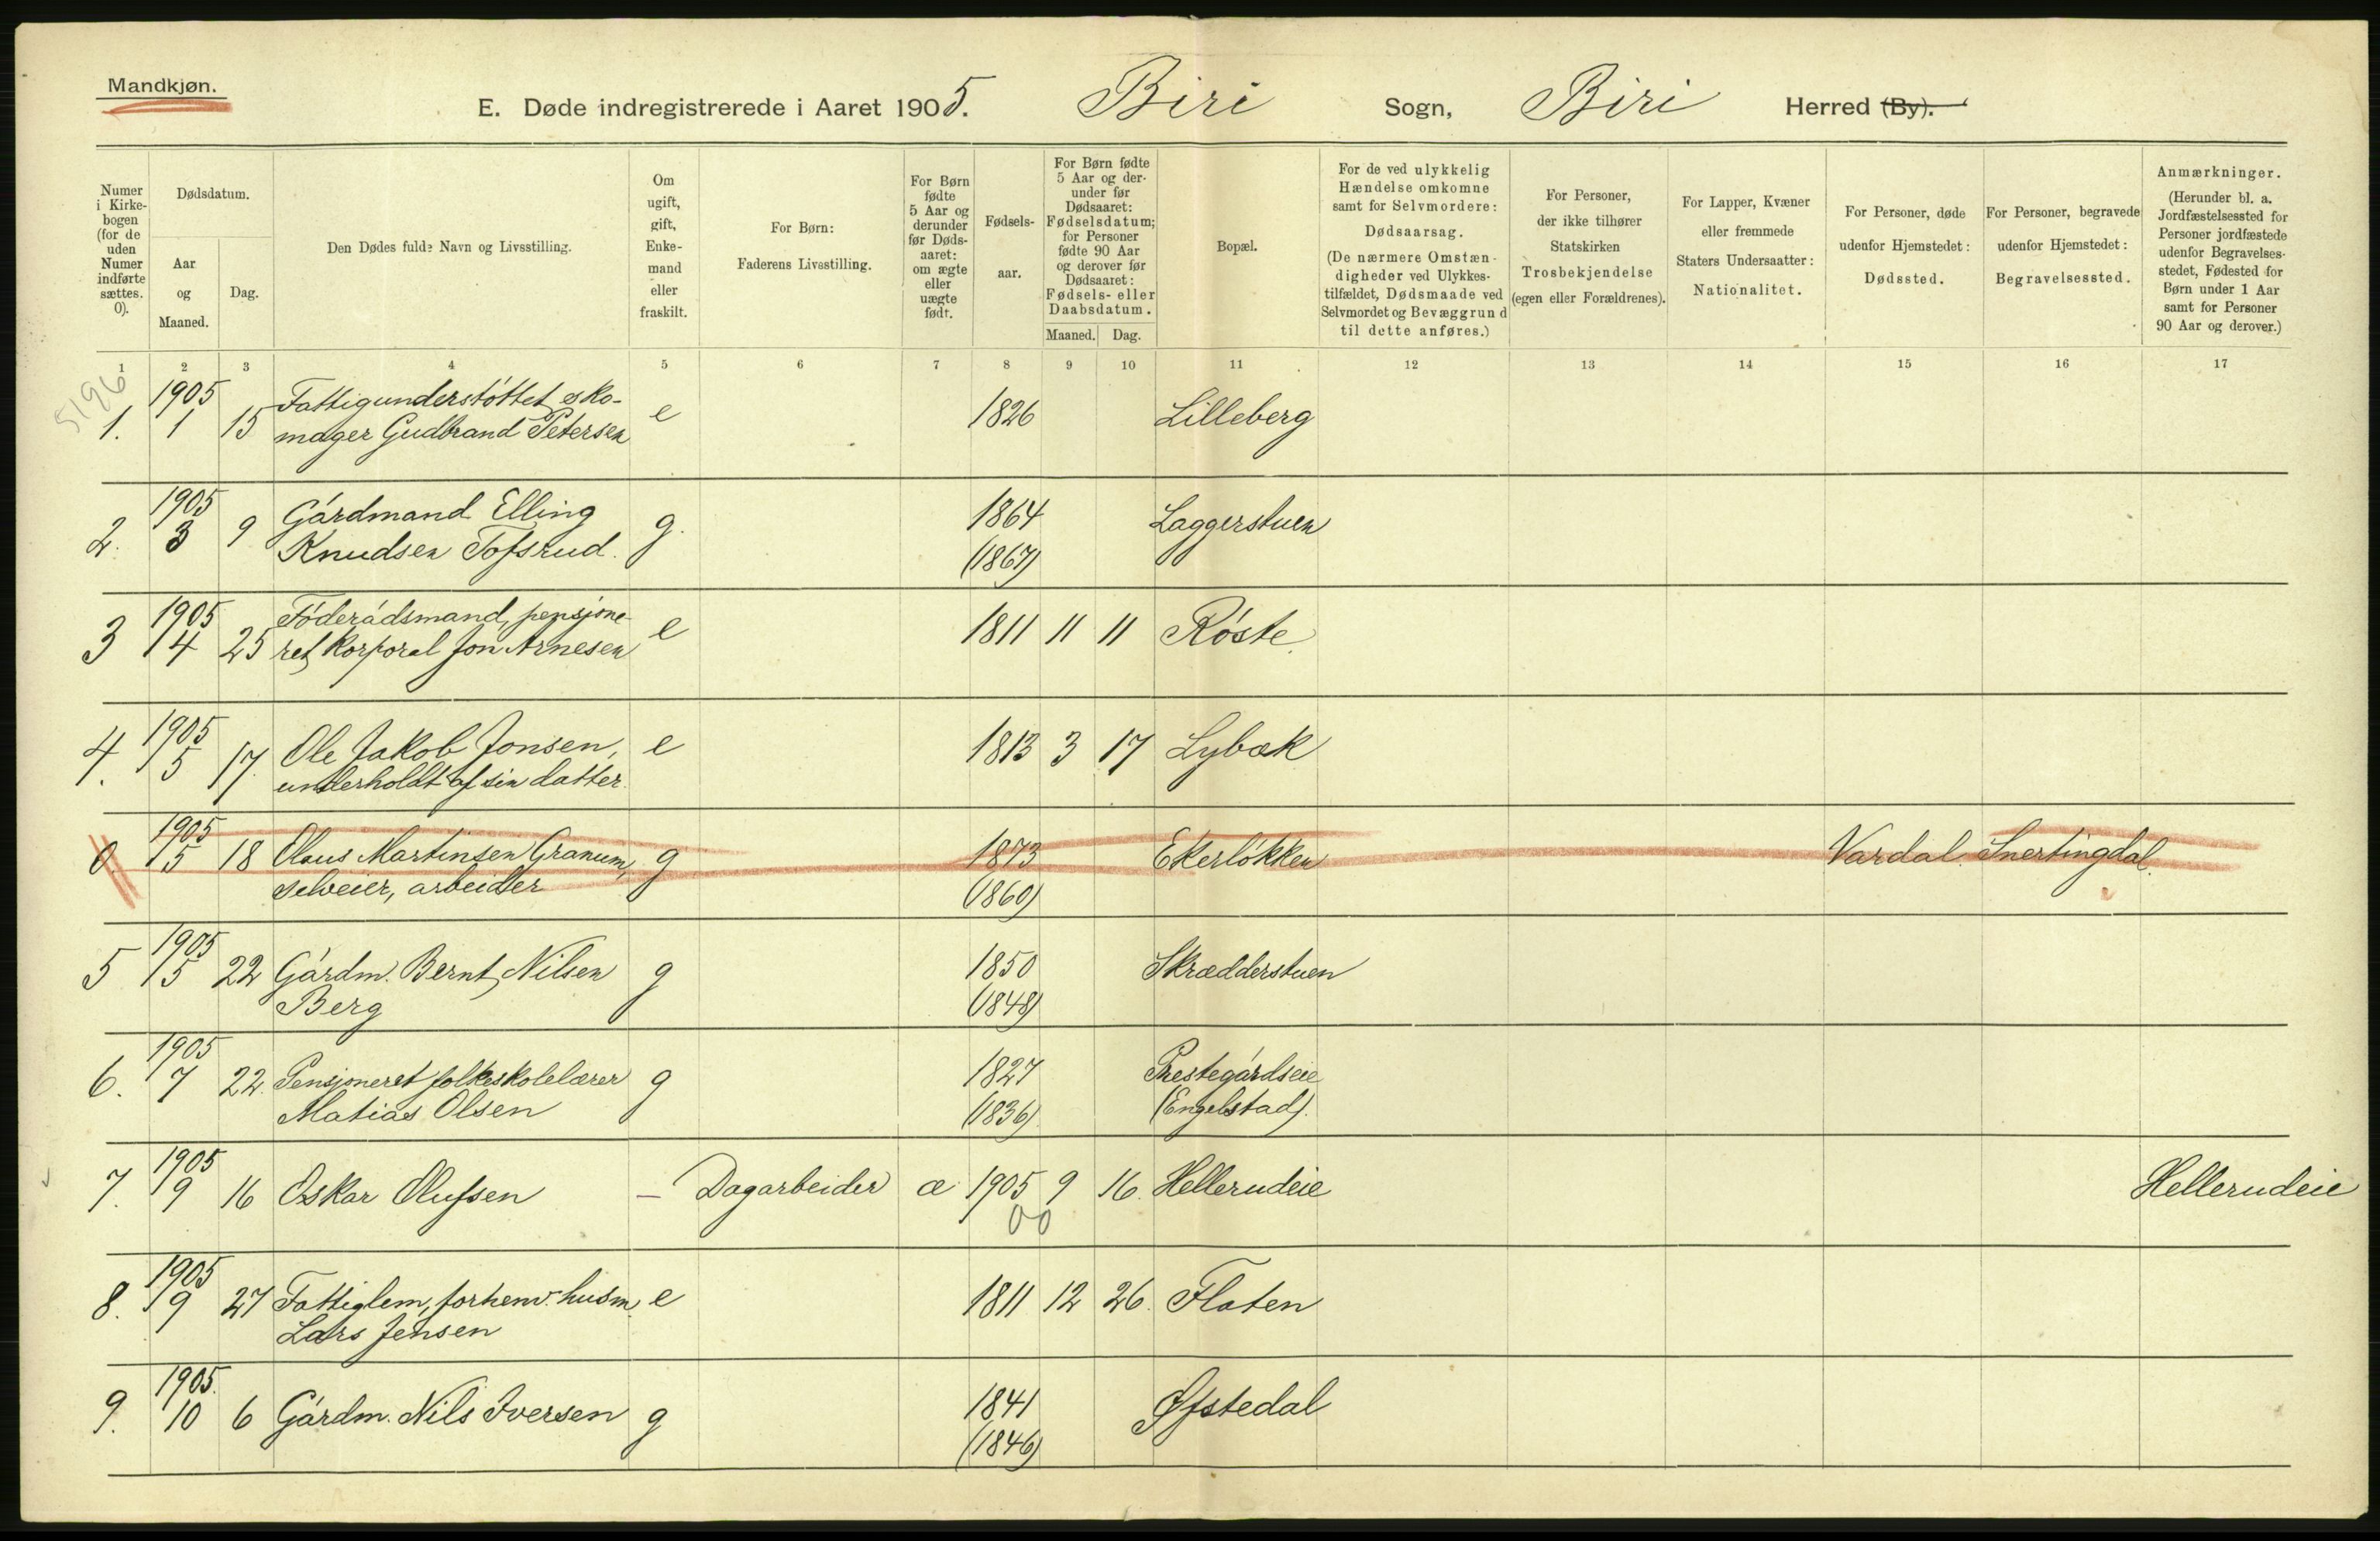 Mandkjøn.
E. Døde indregistrerede i Aaret 1905. Biri Sogn, Biri Herred (By).
Numer i Kirke-bogen (for de uden Numer indførte sættes. 0).
Dødsdatum.
Aar og Maaned.
Dag.
Den Dødes fulde Navn og Livsstilling.
Om ugift, gift, Enke-mand eller fraskilt.
For Børn: Faderens Livsstilling.
For Børn fødte 5 Aar og derunder før Døds-aaret: om ægte eller uægte født.
Fødsels-aar.
For Børn fødte 5 Aar og der-under før Dødsaaret: Fødselsdatum; for Personer fødte 90 Aar og derover før Dødsaaret: Fødsels- eller Daabsdatum.
Maaned. Dag.
Bopæl.
For de ved ulykkelig Hændelse omkomne samt for Selvmordere: Dødsaarsag. (De nærmere Omstæn-digheder ved Ulykkes-tilfældet, Dødsmaade ved Selvmordet og Bevæggrund til dette anføres.)
For Personer, der ikke tilhører Statskirken Trosbekjendelse (egen eller Forældrenes).
For Lapper, Kvæner eller fremmede Staters Undersaatter: Nationalitet.
For Personer, døde udenfor Hjemstedet: Dødssted.
For Personer, begravede udenfor Hjemstedet: Begravelsessted.
Anmærkninger. (Herunder bl. a. Jordfæstelsessted for Personer jordfæstede udenfor Begravelses-stedet, Fødested for Børn under 1 Aar samt for Personer 90 Aar og derover.)
1 2 3 4 5 6 7 8 9 10 11 12 13 14 15 16 17
5196
1905 Fattigunderstøttet sko-
1. 1 15 mager Gudbrand Petersen e 1826 Lilleberg
1905 Gárdmand Elling 1864 Laggerstuen
2. 3 9 Knudsen Tofsrud. g. (1867)
1905 Föderádsmand, pensjone-
3 4 25 ret korporal Jon Arnesen e 1811 11 11 Röste.
1905
4. 5 17. Ole Jakob Jonsen, e 1813 3 17 Lybæk
underholdt af sin datter.
1905
0. 5 18 Olaus Martinsen Granum, g 1873 Ekerløkken Vardal. Snertingdal.
selveier, arbeider (1860)
1905
5 5 22 Gárdm. Bernt Nilsen g 1850 Skrædderstuen
Berg (1848)
1905
6. 7 22. Pensjoneret folkeskolelærer g 1827 Prestegárdseie
Matias Olsen (1836). (Engelstad).
1905
7. 9 16 Oskar Olufsen — Dagarbeider æ 1905 9 16. Hellerudeie Hellerudeie
00
1905
8. 9 27 Fattiglem, forhenv. husm. e 1811 12 26. Flaten
Lars Jensen
1905.
9. 10 6 Gárdm. Nils Iversen g 1841 Øfstedal
(1846)